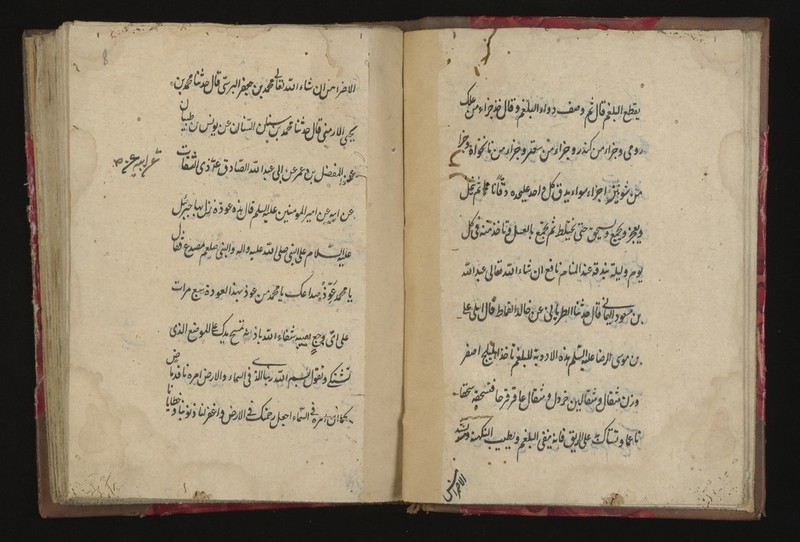 يقطع البلغم قال نعم وصف دواء البلغم وقال خذ جزاء من علك
رومي وجزاء من كندر وجزاء من سعتر وجزاء من نانخواه وجزا
من شونيز اجزاء سواء يدق كل واحد عليحده دقاناعما ثم ينخل
ويعجن ويجمع ويسحق حتى يختلط ثم يجمع بالعسل وتاخذ منه في كل
يوم وليلة بندقة عند المنام نافع ان شاء الله تعالى عبد الله
بن مسعود اليماني قال حدثنا الطرياني عن خالد القماط قال املى علي
بن موسى الرضا عليه السلم هذه الادوية للبلغم تاخذ اهليلج اصفر
وزن مثقال ومثقالين خردل ومثقال عاقرقرحا فتسحقه سحقا
ناعما وتستاك به على الريق فانه ينفي البلغم ويطيب النكهة ويشد
الاضراس
8
الاضراس ان شاء الله تعالى محمد بن جعفر البرسي قال حدثنا محمد بن
يحيى الارمني قال حدثنا محمد بن سنان السناني عن يونس بن ظبيان
عن المفضل بن عمر عن ابي عبد الله الصادق عن ذي الثفنات
عن ابيه عن امير المومنين عليه السلم قال هذه عوذة نزل بها جبرئيل
عليه السلام على النبي صلى الله عليه واله والنبي صلعم مصدع فقال
يا محمد عوذ صداعك يا محمد من عوذ بهذا العوذة سبع مرات
على اي وجع يصيبه شفاه الله باذنه تمسح بيدك على الموضع الذي
تشتكي وتقول بسم الله ربنا الذي في السماء والارض امره نافذ ماض
كما ان امره في السماء اجعل رحمتك في الارض واغفر لنا ذنوبنا وخطايانا